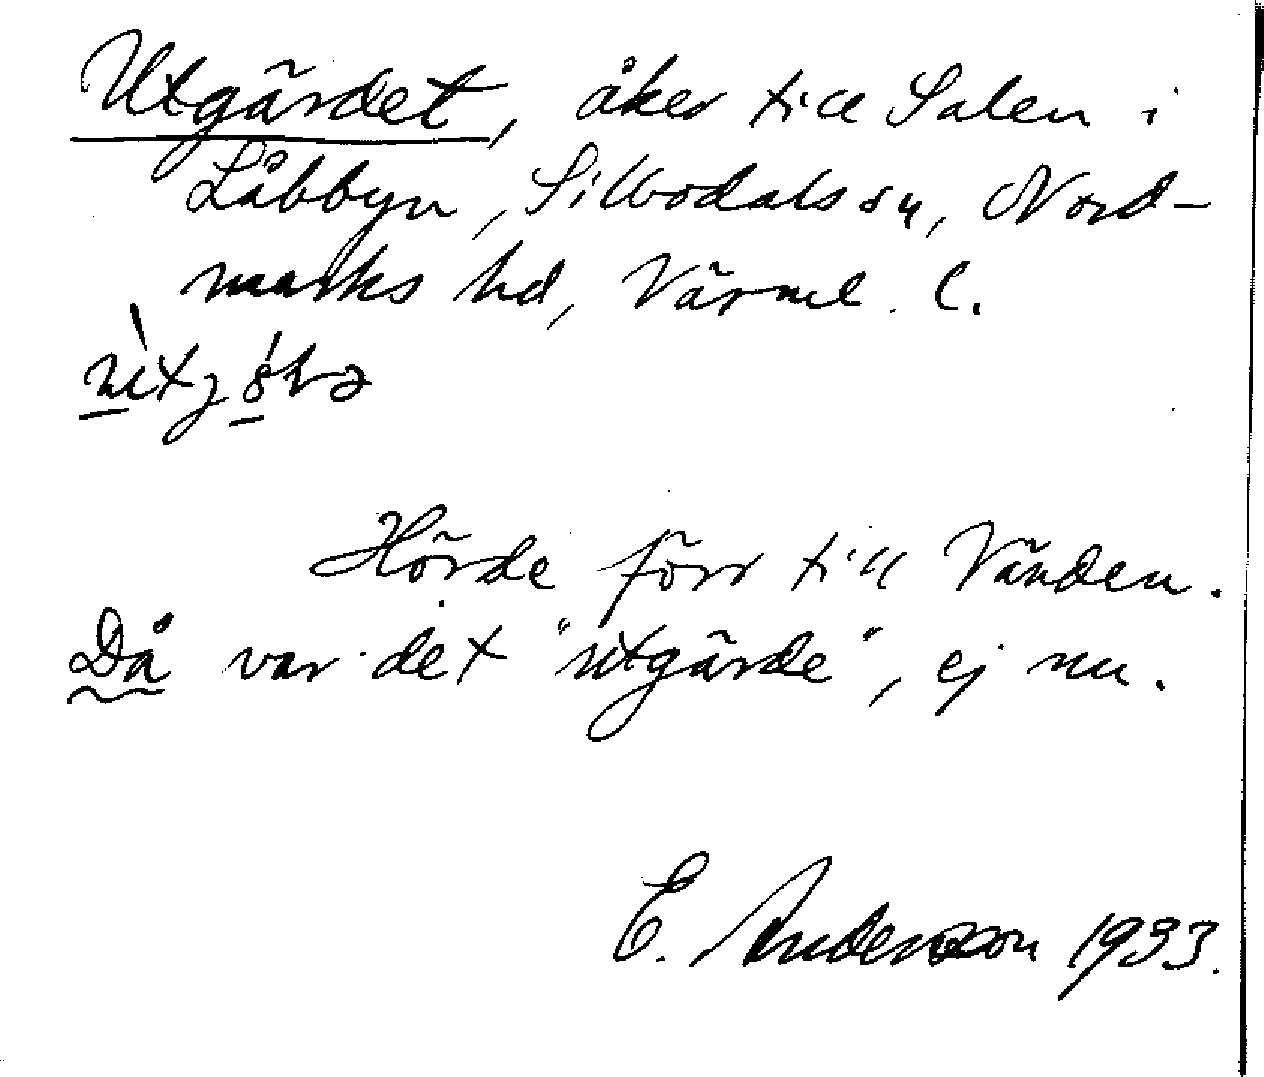 Utgärdet, åker till Salen i
Låbbyn, Silbodals sn, Nord-
marks hd, Värml. l.
Hörde förr till Vänden.
Då var det "utgärde", ej nu.
E. Andersson 1933.